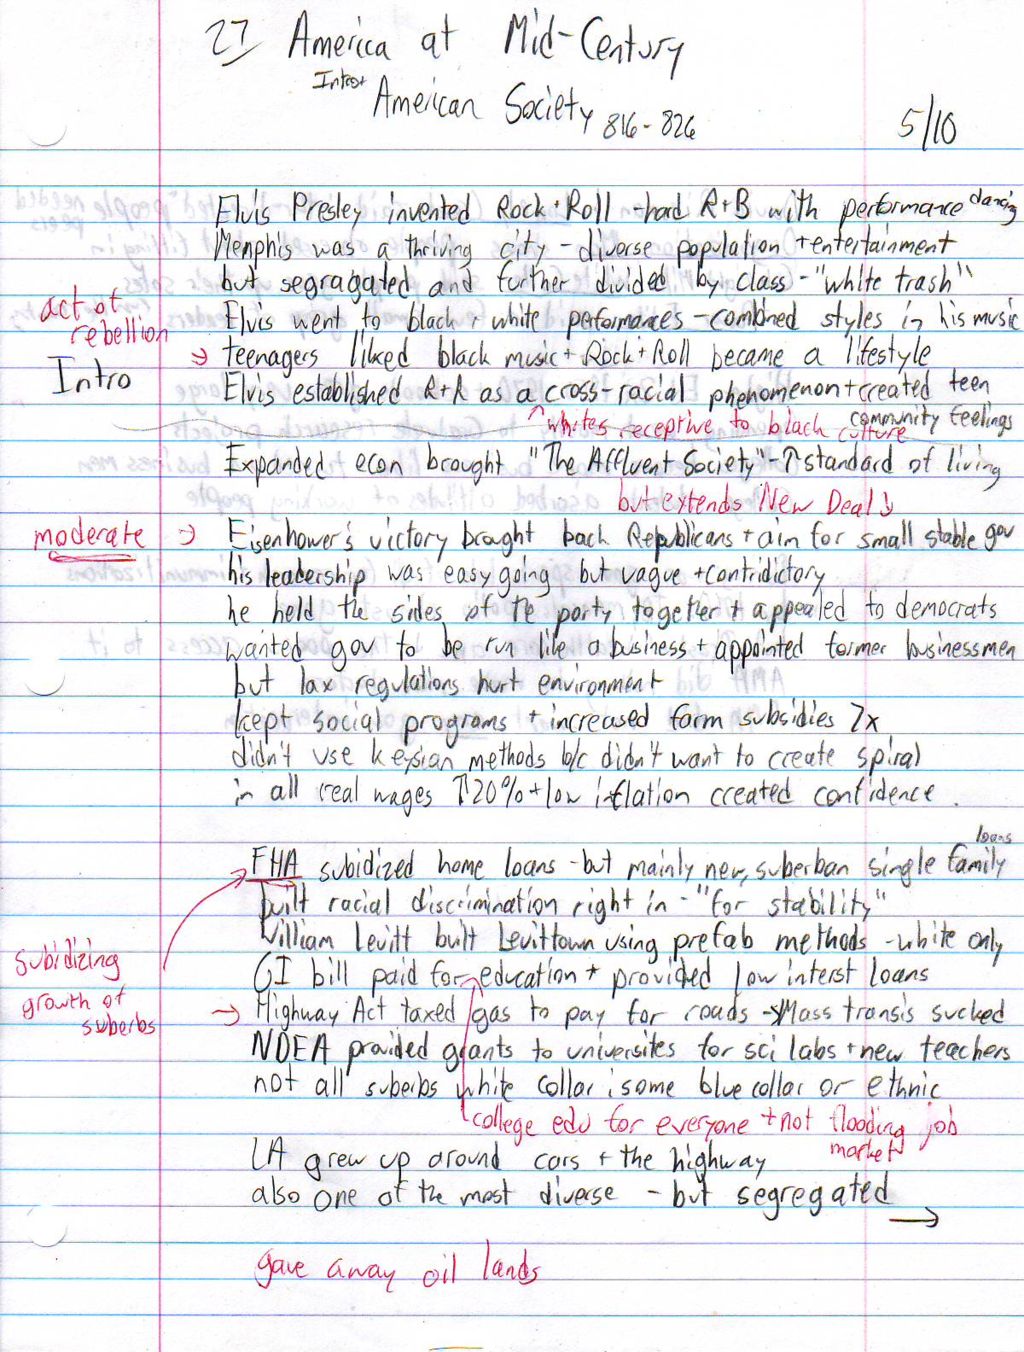 27 America at Mid-Century
Intro+
American Society 816-826
5/10
Elvis Presley invented Rock+Roll -hard R+B with performance dancing
Memphis was a thriving city - diverse population +entertainment
but segragated and further divided by class - "white trash"
act of rebellion
Elvis went to black + white performances -combined styles in his music
→ teenagers liked black music + Rock+Roll became a lifestyle
Intro
Elvis established R+R as a cross-racial phenomenon+created teen
community feelings
↑ whites receptive to black culture
Expanded econ brought "The Affluent Society"-↑standard of living
but extends New Deal ↓
moderate → Eisenhower's victory brought back Republicans + aim for small stable gov
his leadership was easy going but vague +contridictory
he held the sides of the party together + appealed to democrats
wanted gov to be run like a business + appointed former businessmen
but lax regulations hurt environment
kept social programs + increased farm subsidies 7x
didn't use keysian methods b/c didn't want to create spiral
in all real wages ↑20% + low inflation created confidence.
loans
FHA subidized home loans -but mainly new, suberban single family
built racial discrimination right in - "for stability"
William Levitt built Levittown using prefab methods -white only
subidizing
growth of
suberbs
GI bill paid for education + provided low interst loans
→ Highway Act taxed gas to pay for roads → Mass transis sucked
NDEA provided grants to universites for sci labs + new teachers
not all suberbs white collar; some blue collar or ethnic
college edu for everyone + not flooding job
market
LA grew up around cars + the highway
also one of the most diverse - but segregated →
gave away oil lands